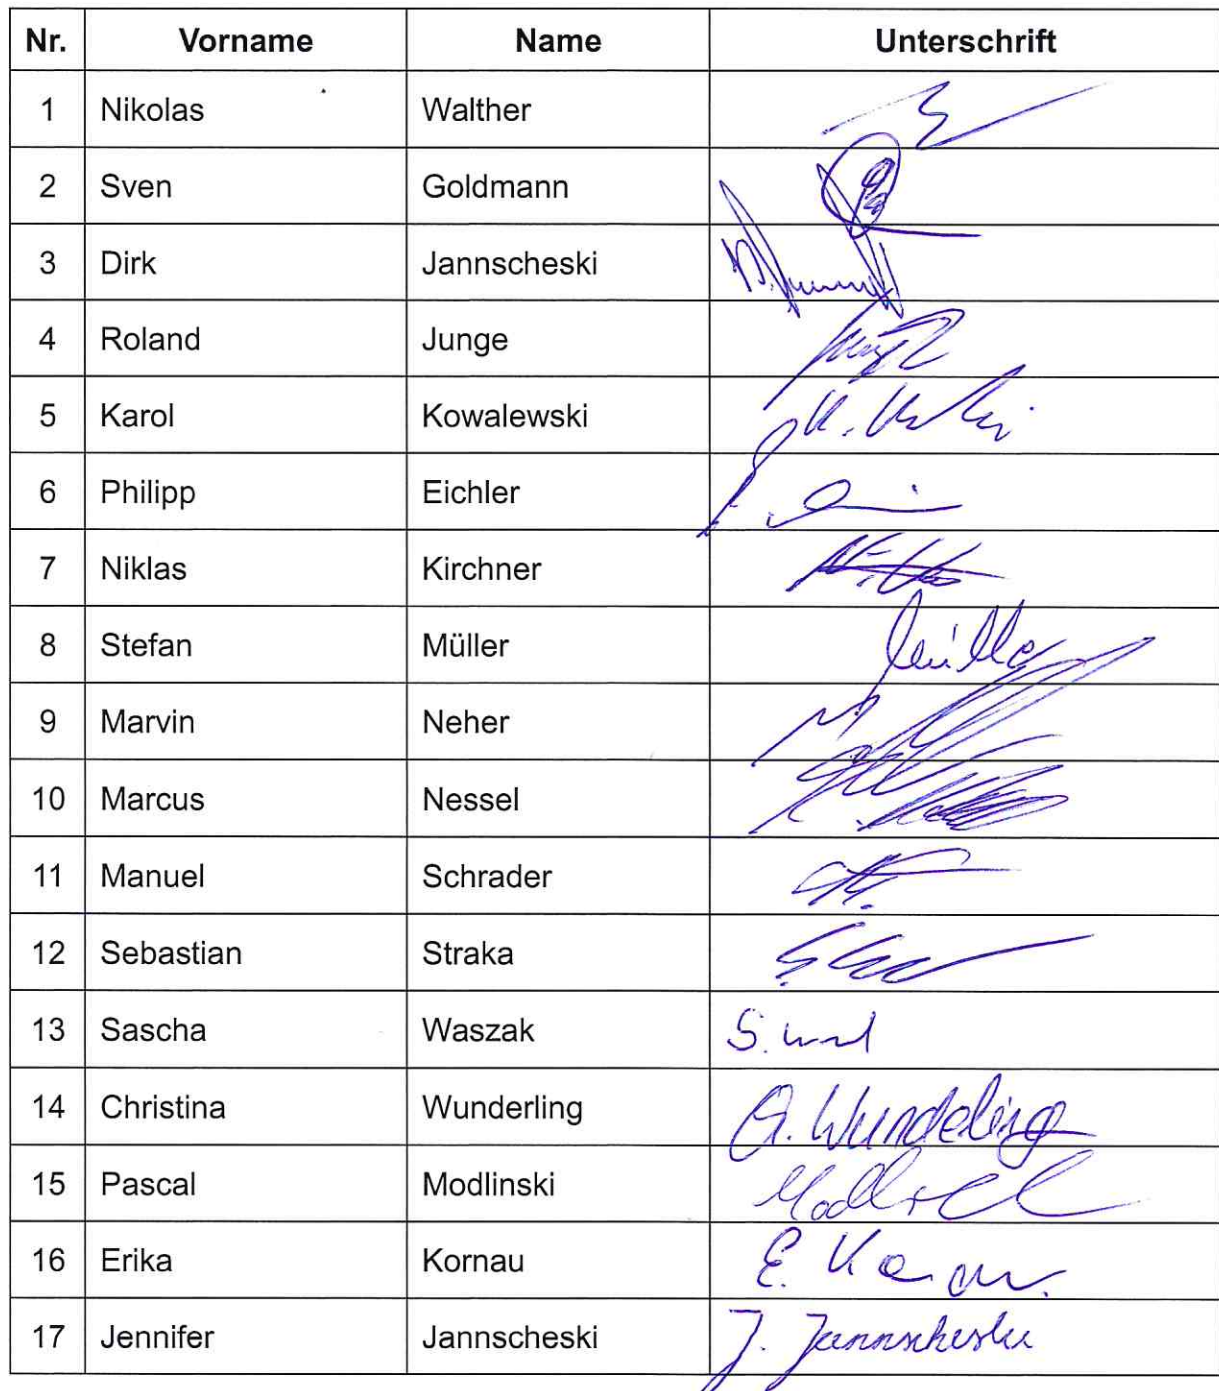 Nr. Vorname Name Unterschrift
1 Nikolas Walther
2 Sven Goldmann
3 Dirk Jannscheski
4 Roland Junge
5 Karol Kowalewski
6 Philipp Eichler
7 Niklas Kirchner
8 Stefan Müller Müller
9 Marvin Neher
10 Marcus Nessel
11 Manuel Schrader
12 Sebastian Straka
13 Sascha Waszak
14 Christina Wunderling
15 Pascal Modlinski
16 Erika Kornau
17 Jennifer Jannscheski J. Jannscheski